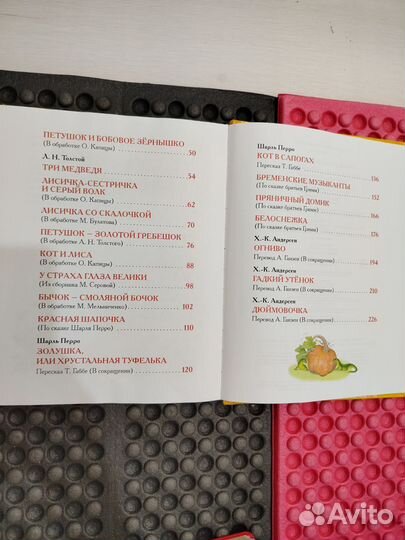 ПЕТУШОК И БОБОВОЕ ЗЁРНЫШКО
(В обработке О. Капицы) 50
Л. Н. Толстой
ТРИ МЕДВЕДЯ 54
ЛИСИЧКА-СЕСТРИЧКА
И СЕРЫЙ ВОЛК
(В обработке О. Капицы) 62
ЛИСИЧКА СО СКАЛОЧКОЙ
(В обработке М. Булатова) 70
ПЕТУШОК – ЗОЛОТОЙ ГРЕБЕШОК
(В обработке А. Н. Толстого) 76
КОТ И ЛИСА
(В обработке О. Капицы) 88
У СТРАХА ГЛАЗА ВЕЛИКИ
(Из сборника М. Серовой) 98
БЫЧОК – СМОЛЯНОЙ БОЧОК
(В обработке М. Мельниченко) 102
КРАСНАЯ ШАПОЧКА
(По сказке Шарля Перро) 110
Шарль Перро
ЗОЛУШКА,
ИЛИ ХРУСТАЛЬНАЯ ТУФЕЛЬКА
Пересказ Т. Габбе (В сокращении) 120
Шарль Перро
КОТ В САПОГАХ 136
Пересказ Т. Габбе
БРЕМЕНСКИЕ МУЗЫКАНТЫ 152
(По сказке братьев Гримм)
ПРЯНИЧНЫЙ ДОМИК
(По сказке братьев Гримм) 166
БЕЛОСНЕЖКА
(По сказке братьев Гримм) 176
Х.-К. Андерсен
ОГНИВО
Перевод А. Ганзен (В сокращении) 194
Х.-К. Андерсен
ГАДКИЙ УТЁНОК
Перевод А. Ганзен (В сокращении) 210
Х.-К. Андерсен
ДЮЙМОВОЧКА
Перевод А. Ганзен (В сокращении) 226
Avito